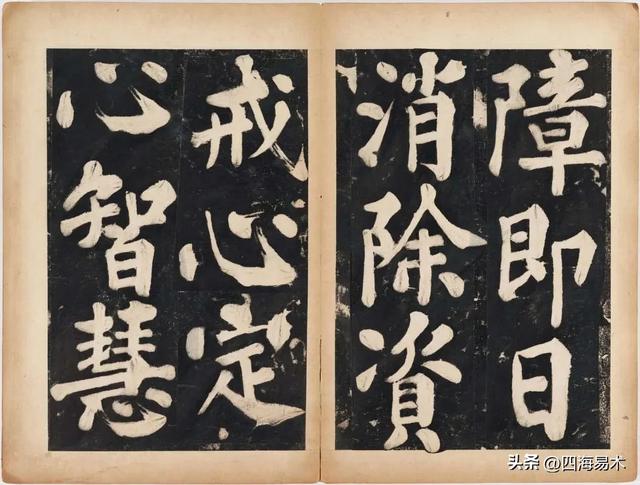 障即日
消除資
戒心定
心智慧
头条 @四海易木